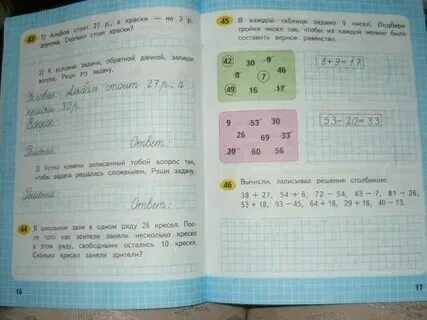 43 1) Альбом стоит 27 р., а краски — на 3 р.
дороже. Сколько стоят краски?
2) К условию задачи, обратной данной, запиши
вопрос. Реши эту задачу.
Условие. Альбом стоит 27 р., а
краски 30 р.
Вопрос
Решение. Ответ:
3) Устно измени записанный тобой вопрос так,
чтобы задача решалась сложением. Реши задачу.
Решение.
Ответ:
44 В школьном зале в одном ряду 26 кресел. Пос-
ле того как зрители заняли несколько кресел
в этом ряду, свободными остались 10 кресел.
Сколько кресел заняли зрители?
16
45 В каждой таблице задано 9 чисел. Подбери
тройки чисел так, чтобы из каждой можно было
составить верное равенство.
42 30 9
8 7 46
49 16 17
8+9=17
9 53 30
26 69 33
20 60 56
53-20=33
46 Вычисли, записывая решение столбиком:
38 + 27, 54 + 6, 72 − 54, 43 − 7, 81 − 26,
53 + 18, 93 − 45, 64 + 18, 29 + 16, 40 − 13.
17